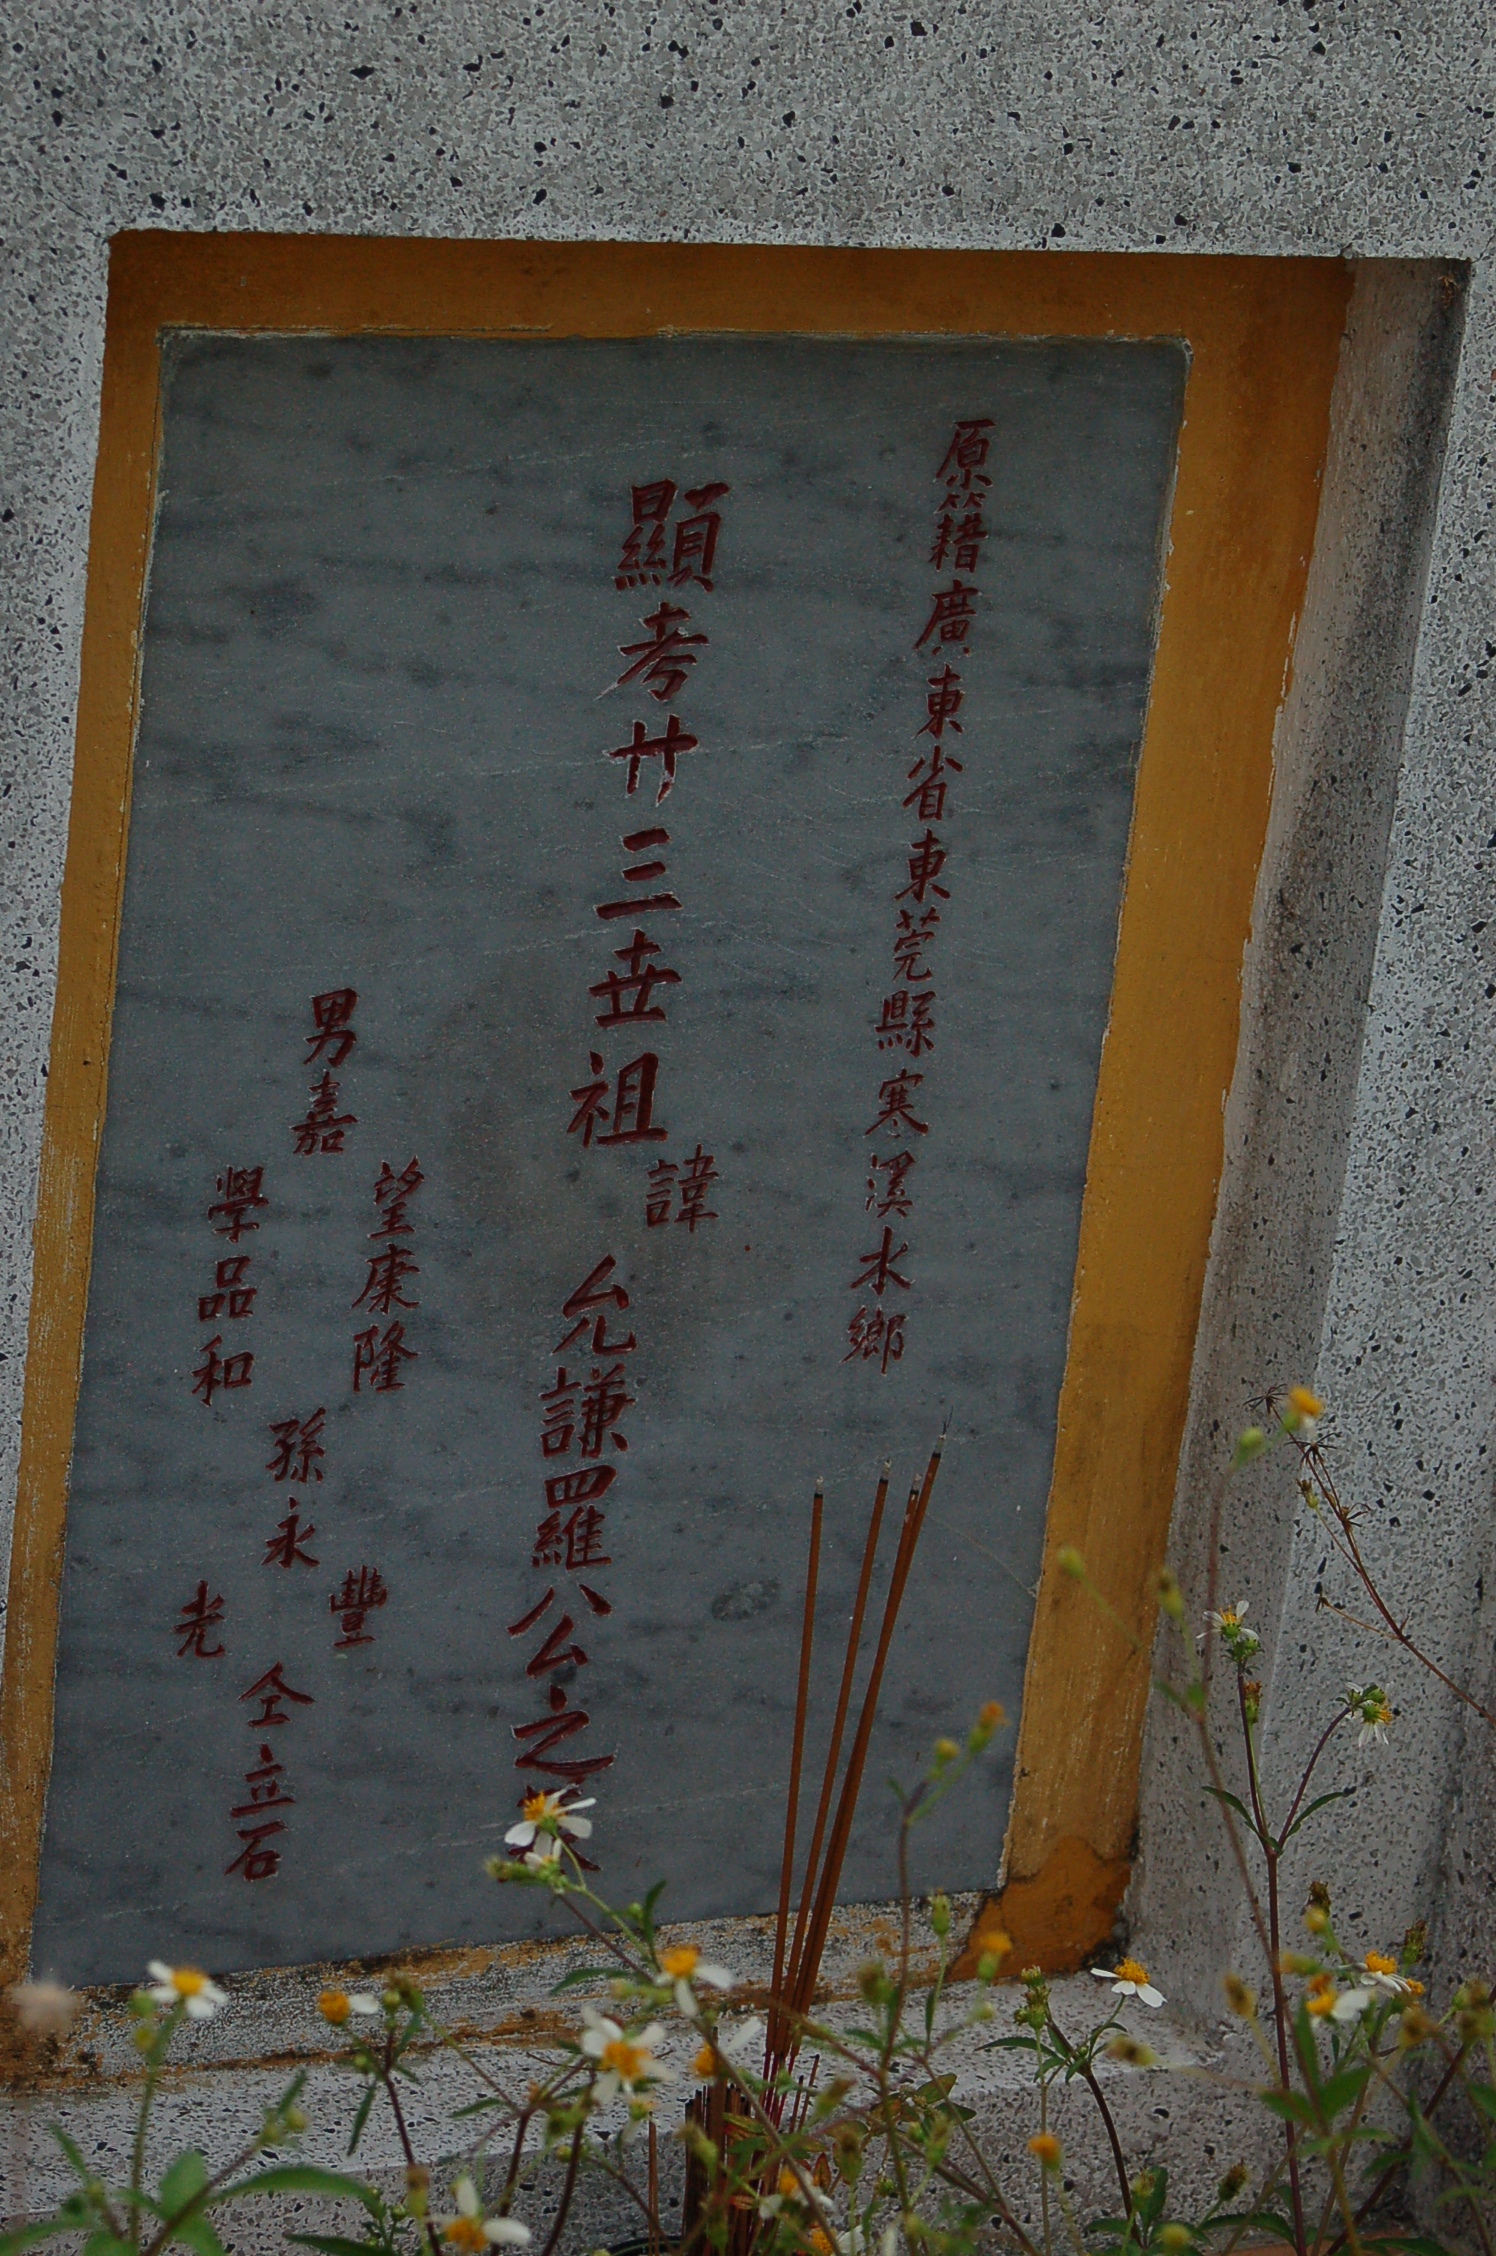 原籍廣東省東莞縣寒溪水鄉
顯考廿三世祖諱允謙羅公之墓
男嘉
望康隆
學品和
孫永
豐
光
仝立石